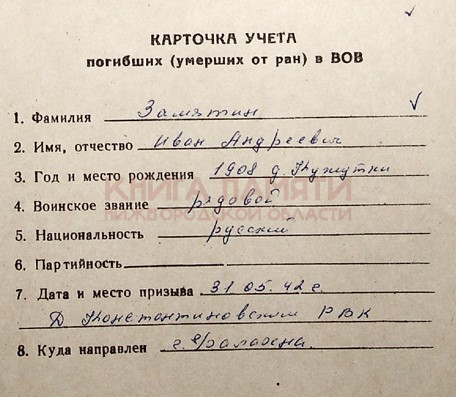 КАРТОЧКА УЧЕТА
погибших (умерших от ран) в ВОВ
1. Фамилия Замятин
2. Имя, отчество Иван Андреевич
3. Год и место рождения 1908 д. Кужутки
КНИГА ПАМЯТИ
4. Воинское звание рядовой
НИЖЕГОРОДСКОЙ ОБЛАСТИ
5. Национальность русский
6. Партийность
7. Дата и место призыва 31 05. 42 г.
Д Константиновским РВК
8. Куда направлен г.